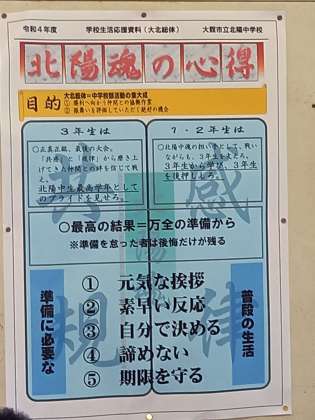 令和４年度　学校生活応援資料（大北総体）　大館市立北陽中学校
北陽魂の心得
目的
大北総体＝中学校部活動の集大成
３年生は
○正真正銘、最後の大会。
「共感」と「規律」から磨き上
げてきた仲間との絆を信じて戦
え。
北陽中生最高学年として
のプライドを見せろ。
１・２年生は
○北陽中魂の担い手として、戦い
ながらも、３年生を支えろ。
３年生から学び、３年生
を後押ししろ。
共感
○最高の結果＝万全の準備から
※準備を怠った者は後悔だけが残る
準備に必要な
① 元気な挨拶
② 素早い反応
③ 自分で決める
④ 諦めない
⑤ 期限を守る
普段の生活
規律